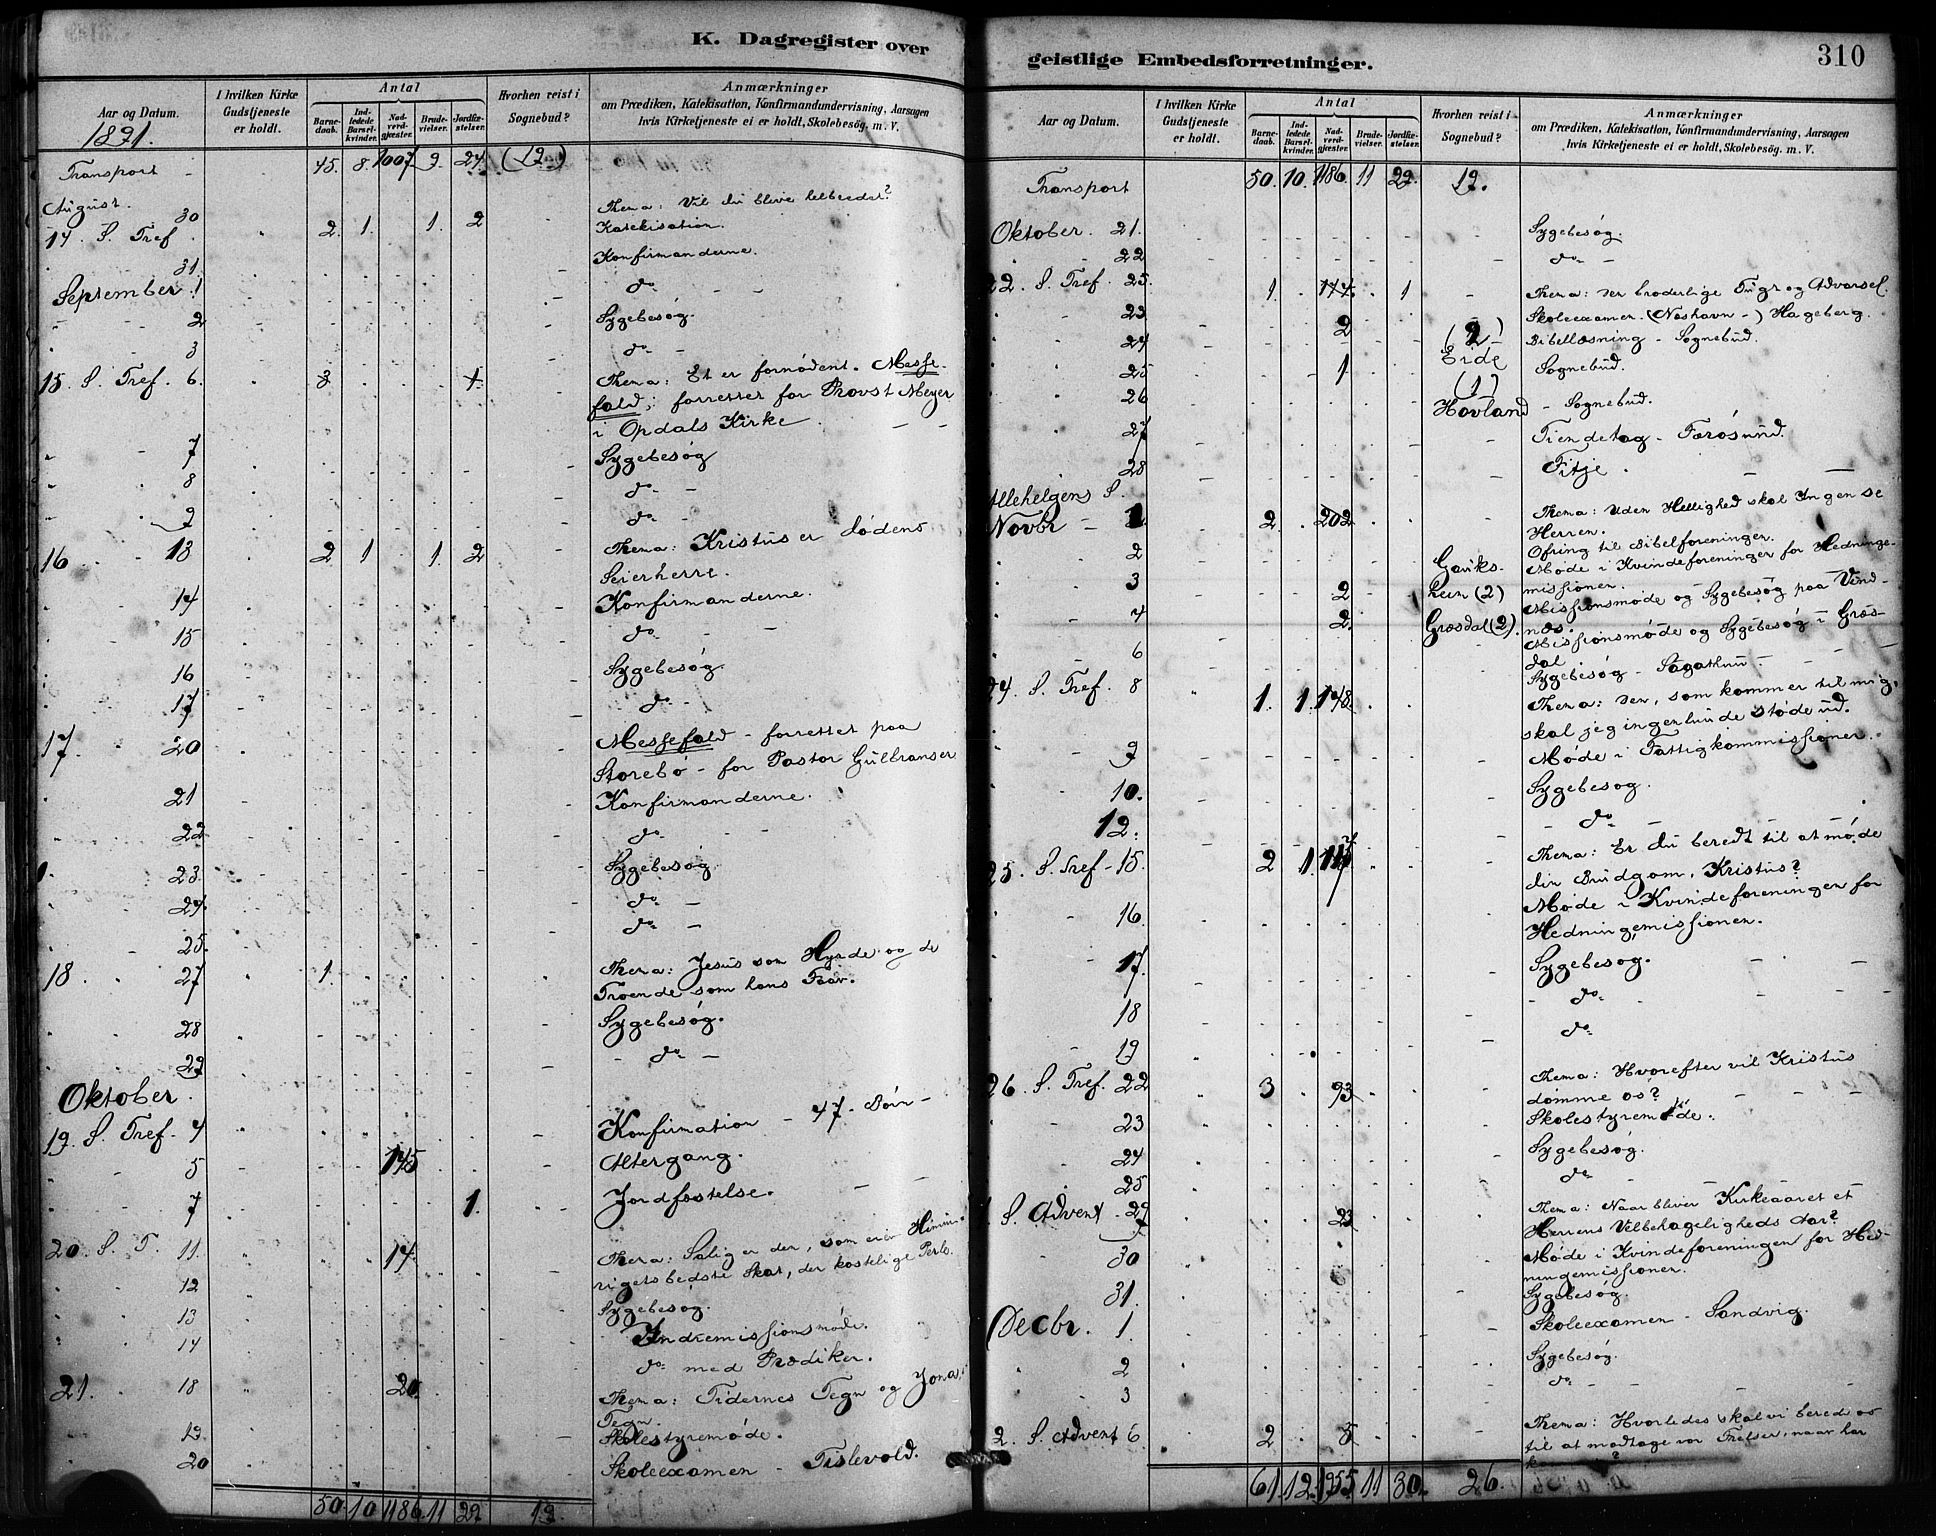 K. Dagregister over
Aar og Datum.
1891.
I hvilken Kirke
Gudstjeneste
er holdt.
Antal
Barne-
daab.
Ind-
ledede
Barsel-
kvinder.
Nad-
verd-
gjæster.
Brude-
vielser.
Jordfæ-
stelser.
Hvorhen reist i
Sognebud?
Anmærkninger
om Prædiken, Katekisation, Konfirmandundervisning, Aarsagen
hvis Kirketjeneste ei er holdt, Skolebesøg. m. V.
Transport 45. 8. 1007 9. 27. (19)
August. 30
14 S. Tref. 2. 1. 1. 2 Thema: Vil du blive helbredet?
Katekisation.
31. Konfirmanderne.
September 1 do
2 Sygebesøg.
3 do
15. S. Tref. 6. 3 1. Thema: Et er fornødent. Messe-
fald; forretter for Provst Meyer
i Opdals Kirke
7 Sygebesøg
8 do
9 do
16 13 2 1 1. 2 Thema: Kristus er Dødens
Seierherre.
14 Konfirmanderne.
15 do
16 Sygebesøg
17 do
17. 20 Messefald - forrettet paa
Storebø - for Pastor Gulbranser
21 Konfirmanderne.
22 do
23. Sygebesøg
24. do
25. do
18. 27 1. Thema: Jesus som Hyrde og de
Troende som hans Faar.
28 Sygebesøg.
29 do
Oktober.
19. S. Tref. 4 Konfirmation - 47. Børn -
5 145 Altergang.
7 1. Jordfæstelse.
20. S. T. 11. 14. Thema: Salig er den, som eier Himme-
rigets bedste Skat, den kostelige Perle.
12 Sygebesøg.
13 Indremissionsmøde.
14 do med Prædiken.
21. 18 20 Thema: Tidernes Tegn og Jonas
Tegn.
19. Skolestyremøde.
20 Skoleexamen - Tislevold.
50 10 1186 11 29 19.
geistlige Embedsforretninger.
310
Aar og Datum.
I hvilken Kirke
Gudstjeneste
er holdt.
Antal
Barne-
daab.
Ind-
ledede
Barsel-
kvinder.
Nad-
verd-
gjæster.
Brude-
vielser.
Jordfæ-
stelser.
Hvorhen reist i
Sognebud?
Anmærkninger
om Prædiken, Katekisation, Konfirmandundervisning, Aarsagen
hvis Kirketjeneste ei er holdt, Skolebesøg. m. V.
Transport 50. 10. 1186. 11 29. 19.
Oktober. 21. Sygebesøg.
22 do
22. S. Tref. 25. 1. 144. 1 Thema: den broderlige Tugt og Advarsel.
23 Skoleexamen. (Næshavn -) Hageberg.
24 2 (2) Eide Bibellæsning - Sognebud.
25 1 Sognebud.
26 (1) Hovland - Sognebud.
27 Tiendetag - Færøsund.
28 Fitje.
Allehelgens S.
Novbr 1 2. 202 Thema: Uden Hellighed skal Ingen se
Herren.
Ofring til Bibelforeningen.
2 Møde i Kvindeforeningen for Hedninge-
missionen.
3 2 Gaviks-
heim (2) Missionsmøde og Sygebesøg paa Vind-
næs.
4 2. Græsdal (2). Missionsmøde og Sygebesøg i Græs-
dal
6 Sygebesøg -
24. S. Tref. 8 1. 1. 148. Thema: den, som kommer til mig,
skal jeg ingenlunde støde ud.
9 Møde i Fattigkommissionen.
10. Sygebesøg.
12. do
25. S. Tref - 15. 2 1. Thema: Er du beredt til at møde
din Brudgom, Kristus?
16. Møde i Kvindeforeningen for
Hedningemissionen.
17. Sygebesøg.
18 do
19 do
26. S. Tref. 22 3 93 Thema: Hvorefter vil Kristus
domme os?
23 Skolestyremøde.
24 Sygebesøg.
25 do
1 S. Advent. 29 23 Thema: Naar bliver Kirkeaaret et
Herrens Velbehageligheds Aar?
30 Møde i Kvindeforeningen for Hed-
ningemissionen.
31. Sygebesøg.
Decbr. 1. Skoleexamen - Sandvig.
2 Sygebesøg.
3 do
2. S. Advent 6. 2 5 Thema: Hvorledes skal vi berede os
til at modtage vor Frelser, naar han
61. 12. 1955 11 30. 26.